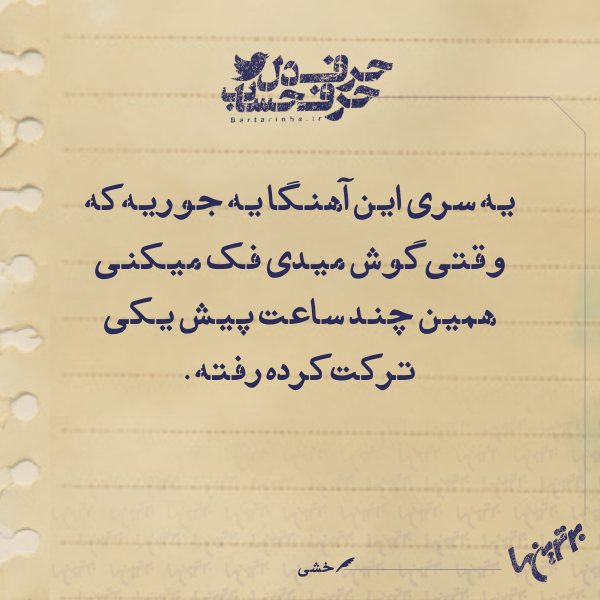 حرف دل
حرف حساب
Bartarinha.ir
یه سری این آهنگا یه جوریه که
وقتی گوش میدی فک میکنی
همین چند ساعت پیش یکی
ترکت کرده رفته.
خشی
برترین‌ها